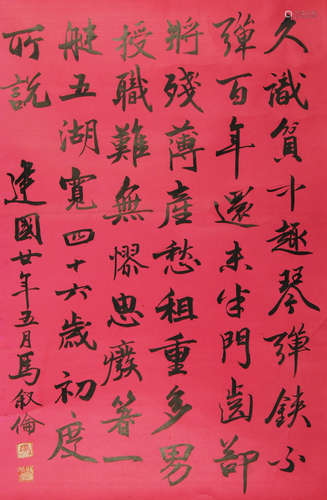 久識貧中趣琴彈鋏不
彈百年還未半門齒鄙
將殘薄產愁租重多男
授職難無憀忠癈箸一
艇五湖寬四十六歲初度
所說
建國廿年五月馬叙倫